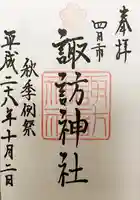 奉拝
四日市
諏訪神社
秋季例祭
平成二八年十月二日